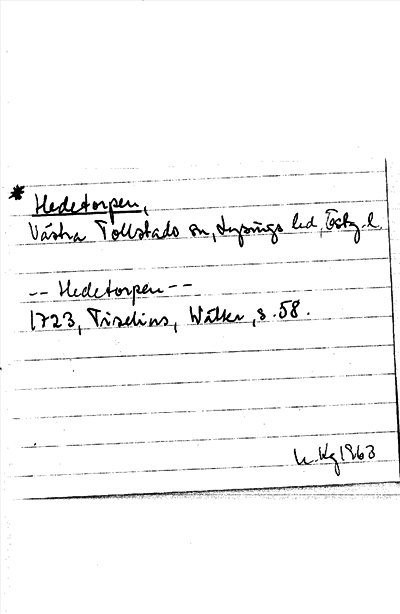 * Hedetorpen,
Västra Tollstads sn, Lysings hd, Östg. l.
-- Hedetorpen --
1723, Tiselius, Wätter, s. 58.
Kg 1963